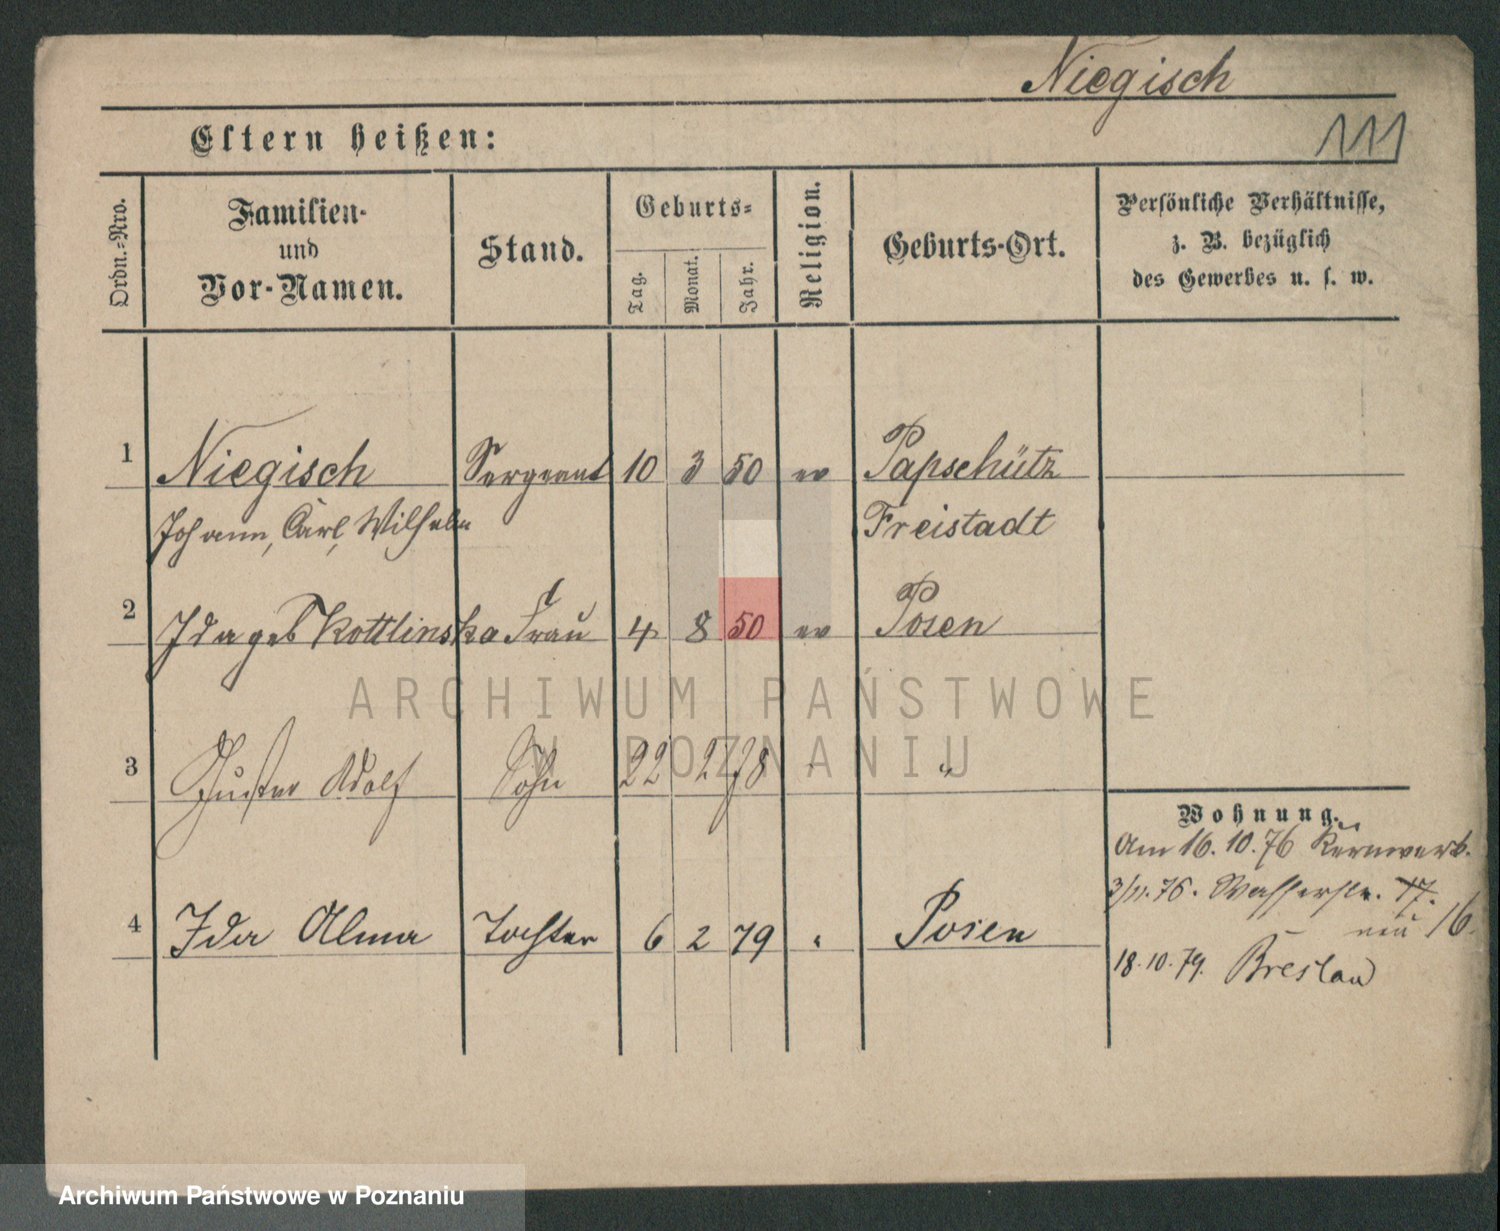 Niegisch
111
Eltern heißen:
Ordn.=Nro.
Familien-
und
Vor-Namen.
Stand.
Geburts=
Tag.
Monat.
Jahr.
Religion.
Geburts-Ort.
Persönliche Verhältnisse,
z. B. bezüglich
des Gewerbes u. s. w.
1 Niegisch Sergeant 10 3 50 ev Papschütz
Johann, Carl, Wilhelm Freistadt
2 Ida geb Kottlinska Frau 4 8 50 ev Posen
3 Gustav Adolf Sohn 22 2 78 "
4 Ida Alma Tochter 6 2 79 " Posen
Wohnung.
Am 16. 10. 76 Kernwerk.
3/11. 76. Wasserstr. 17.
neu 16.
18. 10. 79. Breslau
ARCHIWUM PAŃSTWOWE
W POZNANIU
Archiwum Państwowe w Poznaniu